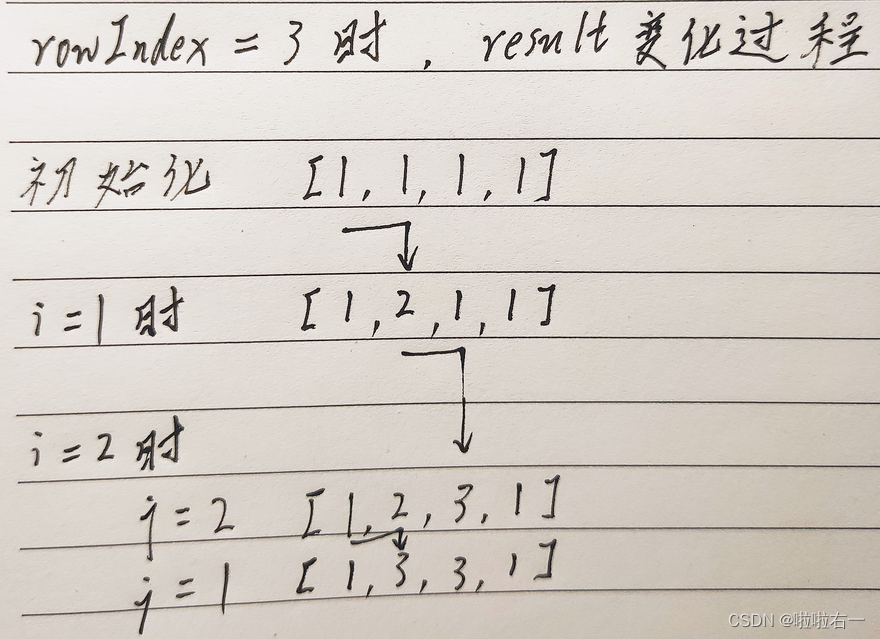 rowIndex = 3 时, result 变化过程
初始化 [1, 1, 1, 1]
i = 1 时 [1, 2, 1, 1]
i = 2 时
j = 2 [1, 2, 3, 1]
j = 1 [1, 3, 3, 1]
CSDN @啦啦右一